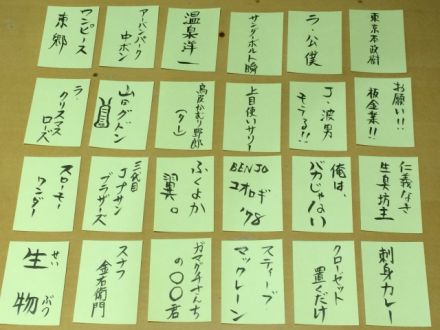 東京不政尉
ラ・公僕
サンダーボルト瞬
温泉洋一
アーバンパーク
中ボン
ワンピース
東郷
お願い!!
板金業!!
J・波男
モってる!!
上目使いサリー
鳥皮かむり野郎
(タレ)
山田グドン
ラ・
クリスマス
ローズ
仁義なき
生臭坊主
俺は、
バカじゃない
BENJO
コオロギ
'78
ふくよか
翼。
三代目
Jプサン
ブラザーズ
スローモー
ワンダー
刺身カレー
クローゼット
置くだけ
スティーブ
マックレーン
ガマグチさんち
の〇〇君
スナフ
金右衛門
せい ぶつ
生物